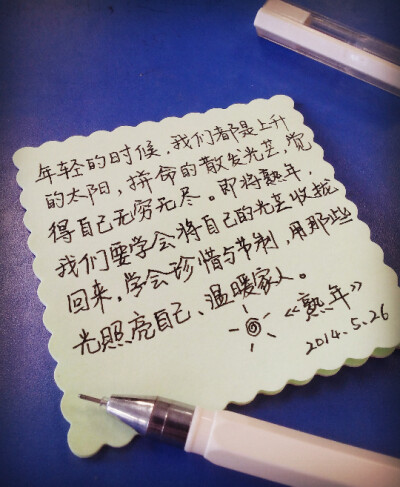 年轻的时候，我们都是上升
的太阳，拼命的散发光芒，觉
得自己无穷无尽。即将熟年，
我们要学会将自己的光芒收拢
回来，学会珍惜与节制，用那些
光照亮自己、温暖家人。
《熟年》
2014.5.26